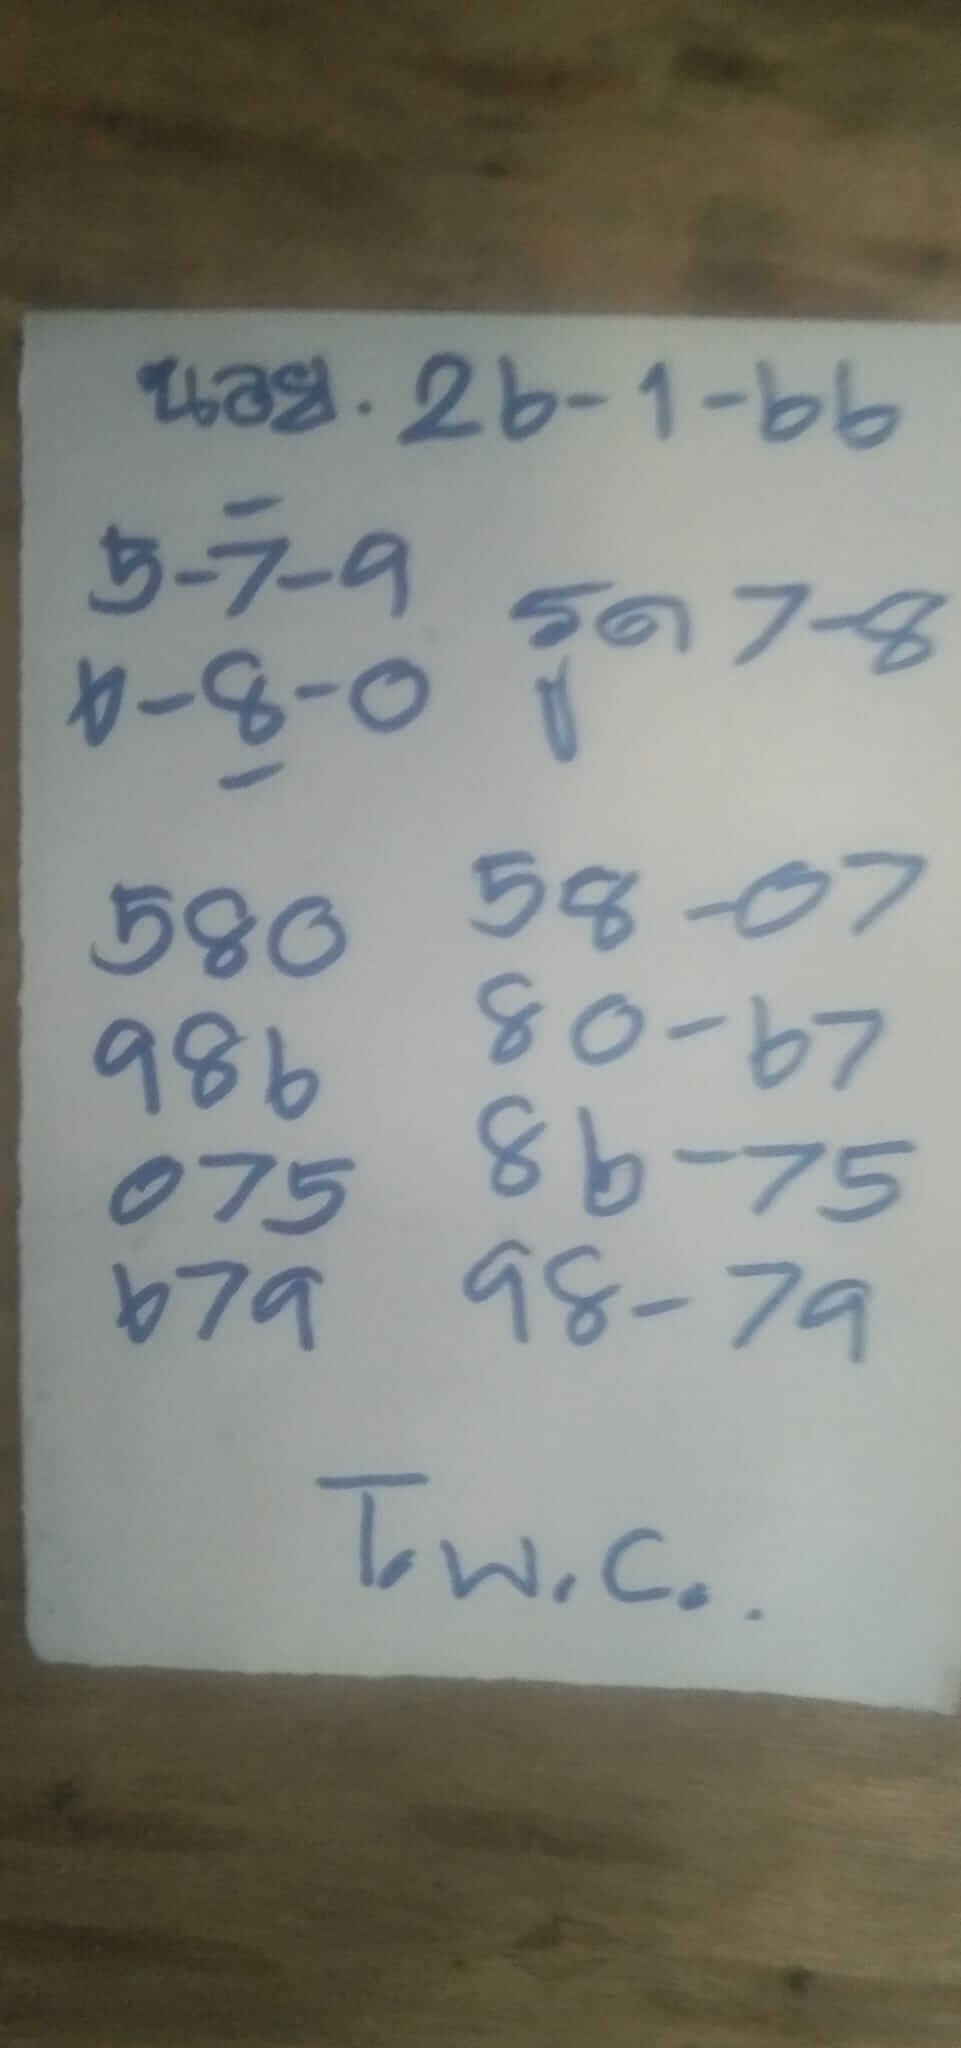 นอย. 26-1-66
5-7-9
6-8-0
รูด 7-8
580 58-07
986 80-67
075 86-75
679 98-79